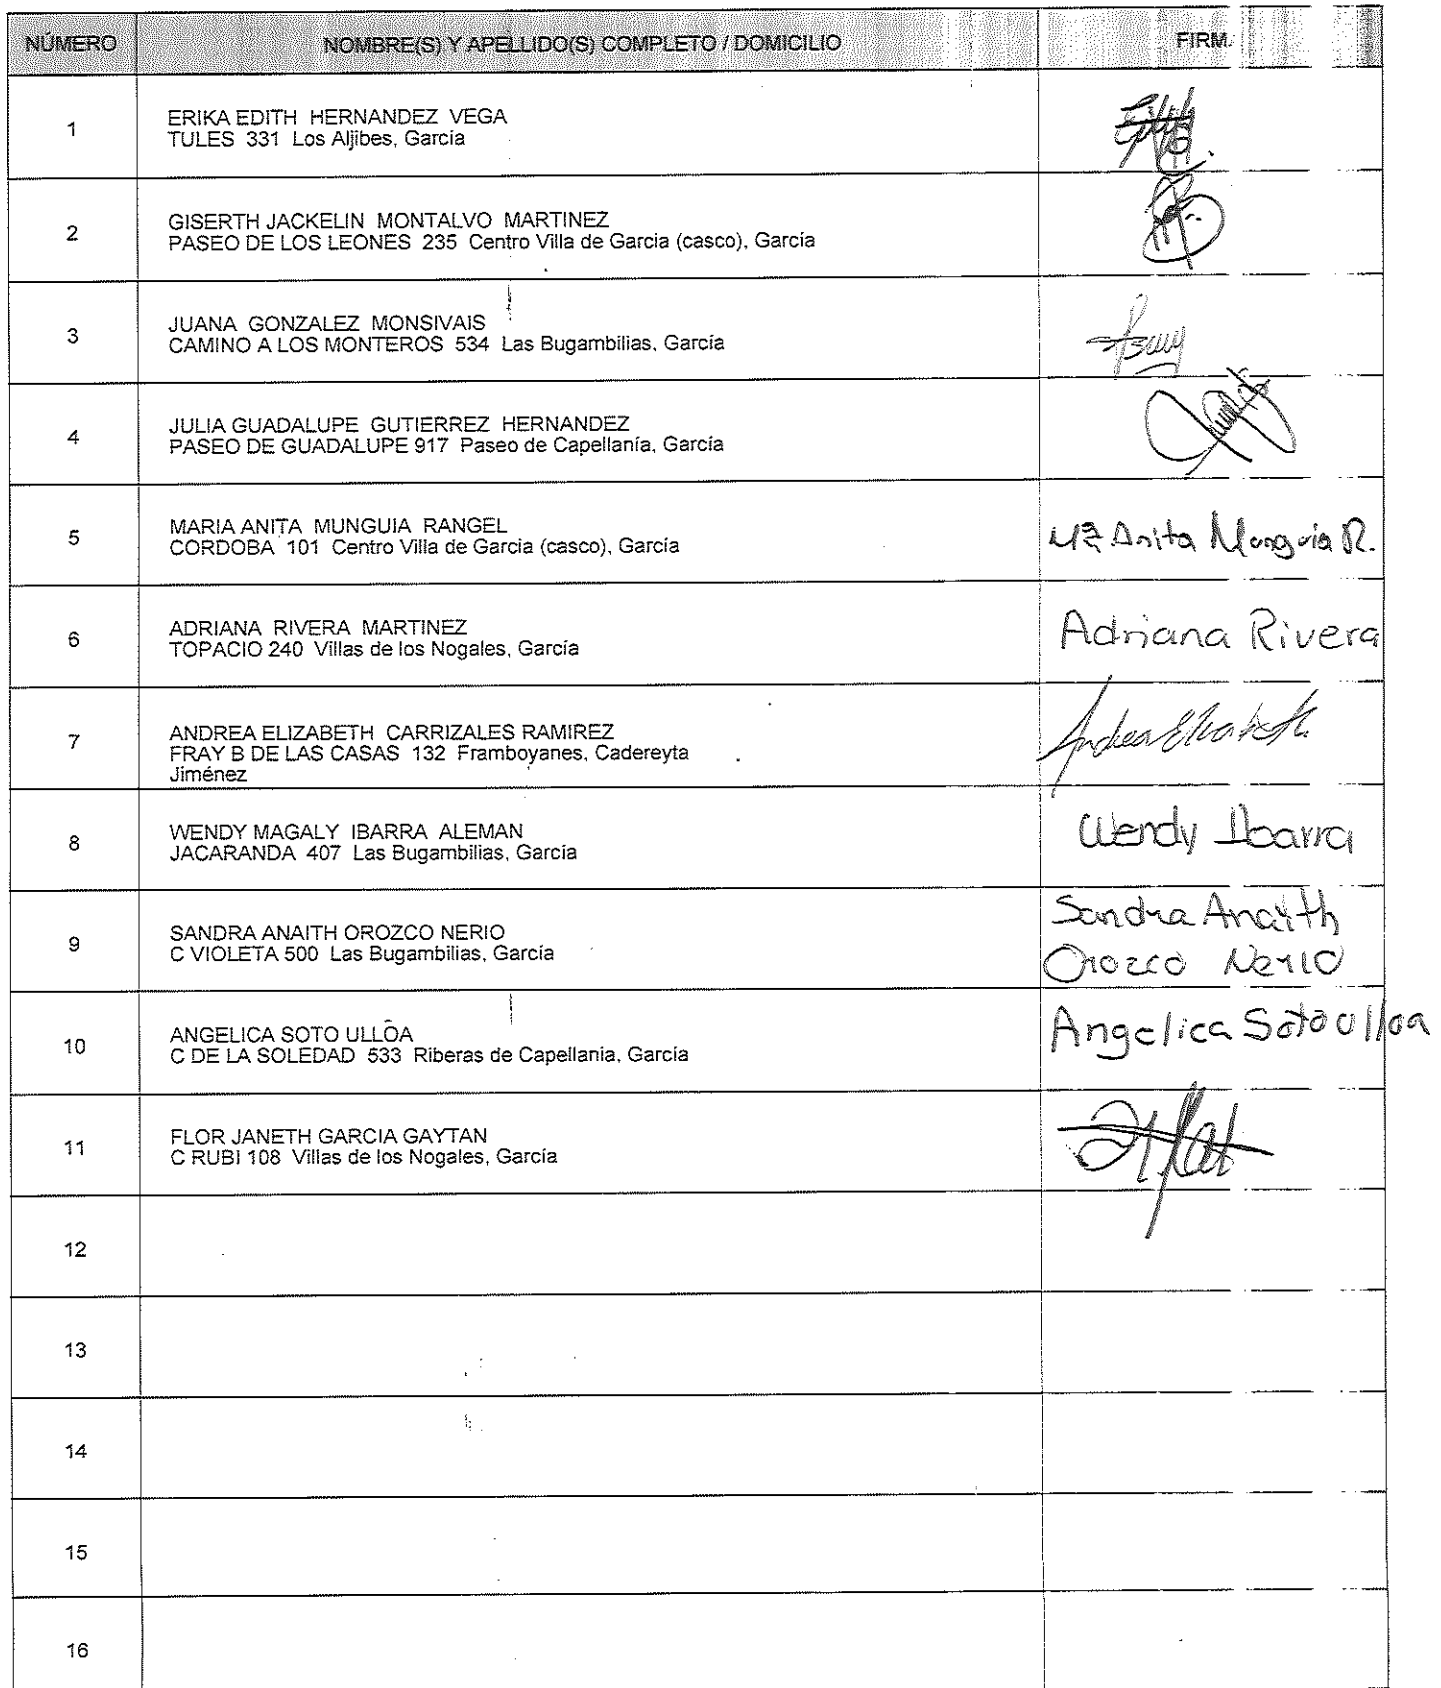 NÚMERO NOMBRE(S) Y APELLIDO(S) COMPLETO / DOMICILIO FIRM
1 ERIKA EDITH HERNANDEZ VEGA
TULES 331 Los Aljibes, García
2 GISERTH JACKELIN MONTALVO MARTINEZ
PASEO DE LOS LEONES 235 Centro Villa de Garcia (casco), García
3 JUANA GONZALEZ MONSIVAIS
CAMINO A LOS MONTEROS 534 Las Bugambilias, García
4 JULIA GUADALUPE GUTIERREZ HERNANDEZ
PASEO DE GUADALUPE 917 Paseo de Capellanía, García
5 MARIA ANITA MUNGUIA RANGEL
CORDOBA 101 Centro Villa de Garcia (casco), García
Mª Anita Munguia R.
6 ADRIANA RIVERA MARTINEZ
TOPACIO 240 Villas de los Nogales, García
Adriana Rivera
7 ANDREA ELIZABETH CARRIZALES RAMIREZ
FRAY B DE LAS CASAS 132 Framboyanes, Cadereyta
Jiménez
Andrea Elizabeth
8 WENDY MAGALY IBARRA ALEMAN
JACARANDA 407 Las Bugambilias, García
Wendy Ibarra
9 SANDRA ANAITH OROZCO NERIO
C VIOLETA 500 Las Bugambilias, García
Sandra Anaith
Orozco Nerio
10 ANGELICA SOTO ULLOA
C DE LA SOLEDAD 533 Riberas de Capellania, García
Angelica Soto Ulloa
11 FLOR JANETH GARCIA GAYTAN
C RUBI 108 Villas de los Nogales, García
12
13
14
15
16